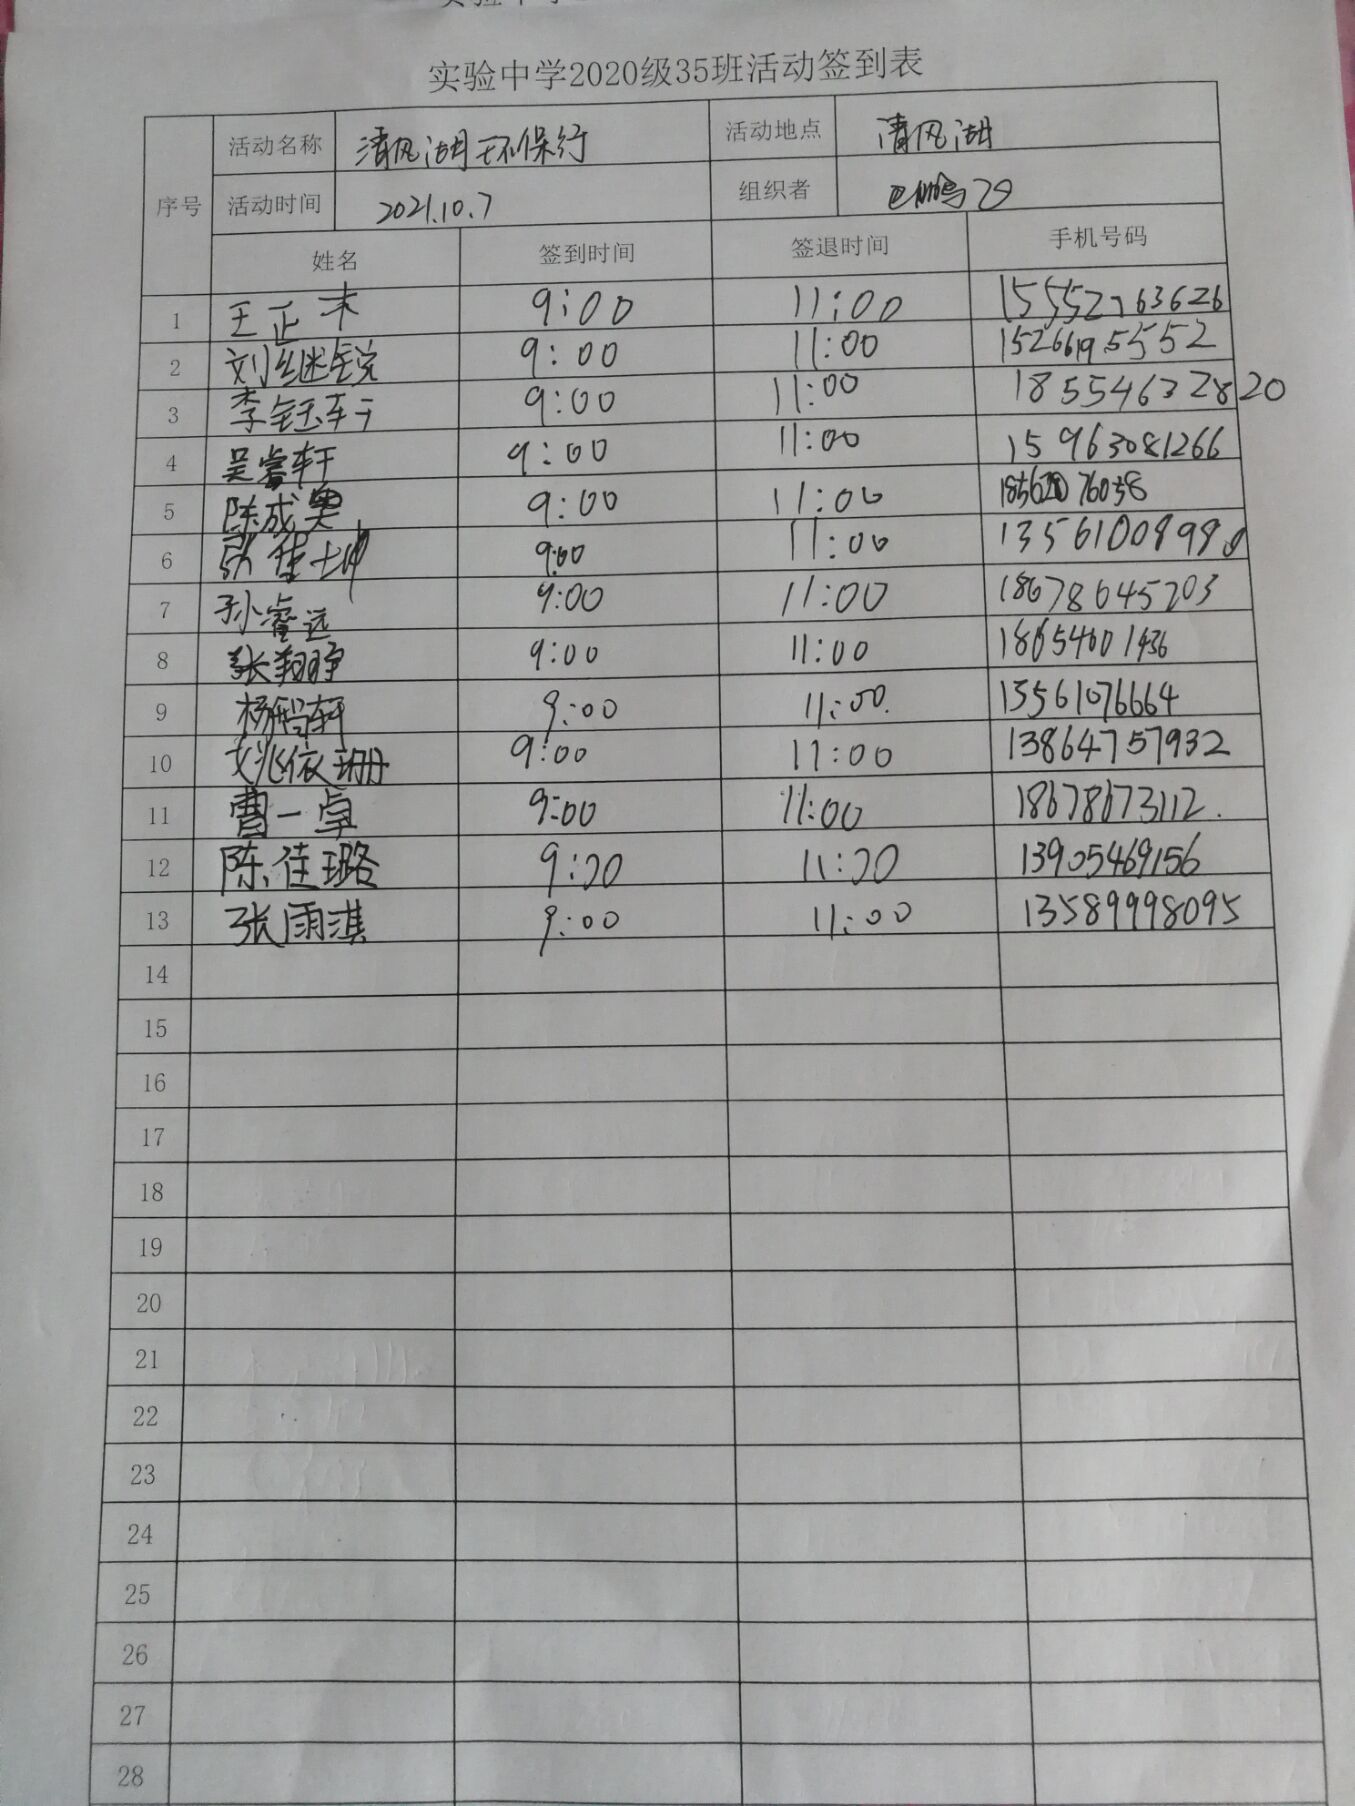 实验中学2020级35班活动签到表
序号 活动名称 清风湖环保行 活动地点 清风湖
活动时间 2021.10.7 组织者
姓名 签到时间 签退时间 手机号码
1 王正木 9:00 11:00 15552763626
2 刘继锐 9:00 11:00 15266195552
3 李钰轩 9:00 11:00 18554632820
4 吴睿轩 9:00 11:00 15963081266
5 陈成奥 9:00 11:00
6 张佳坤 9:00 11:00
7 孙睿远 9:00 11:00 18678645203
8 9:00 11:00 18654601436
9 杨鹏轩 9:00 11:00. 13561076664
10 姚依珊 9:00 11:00 13864757932
11 曹一卓 9:00 11:00 18678673112.
12 陈佳璐 9:00 11:00 13905469156
13 张雨淇 9:00 11:00 13589998095
14
15
16
17
18
19
20
21
22
23
24
25
26
27
28